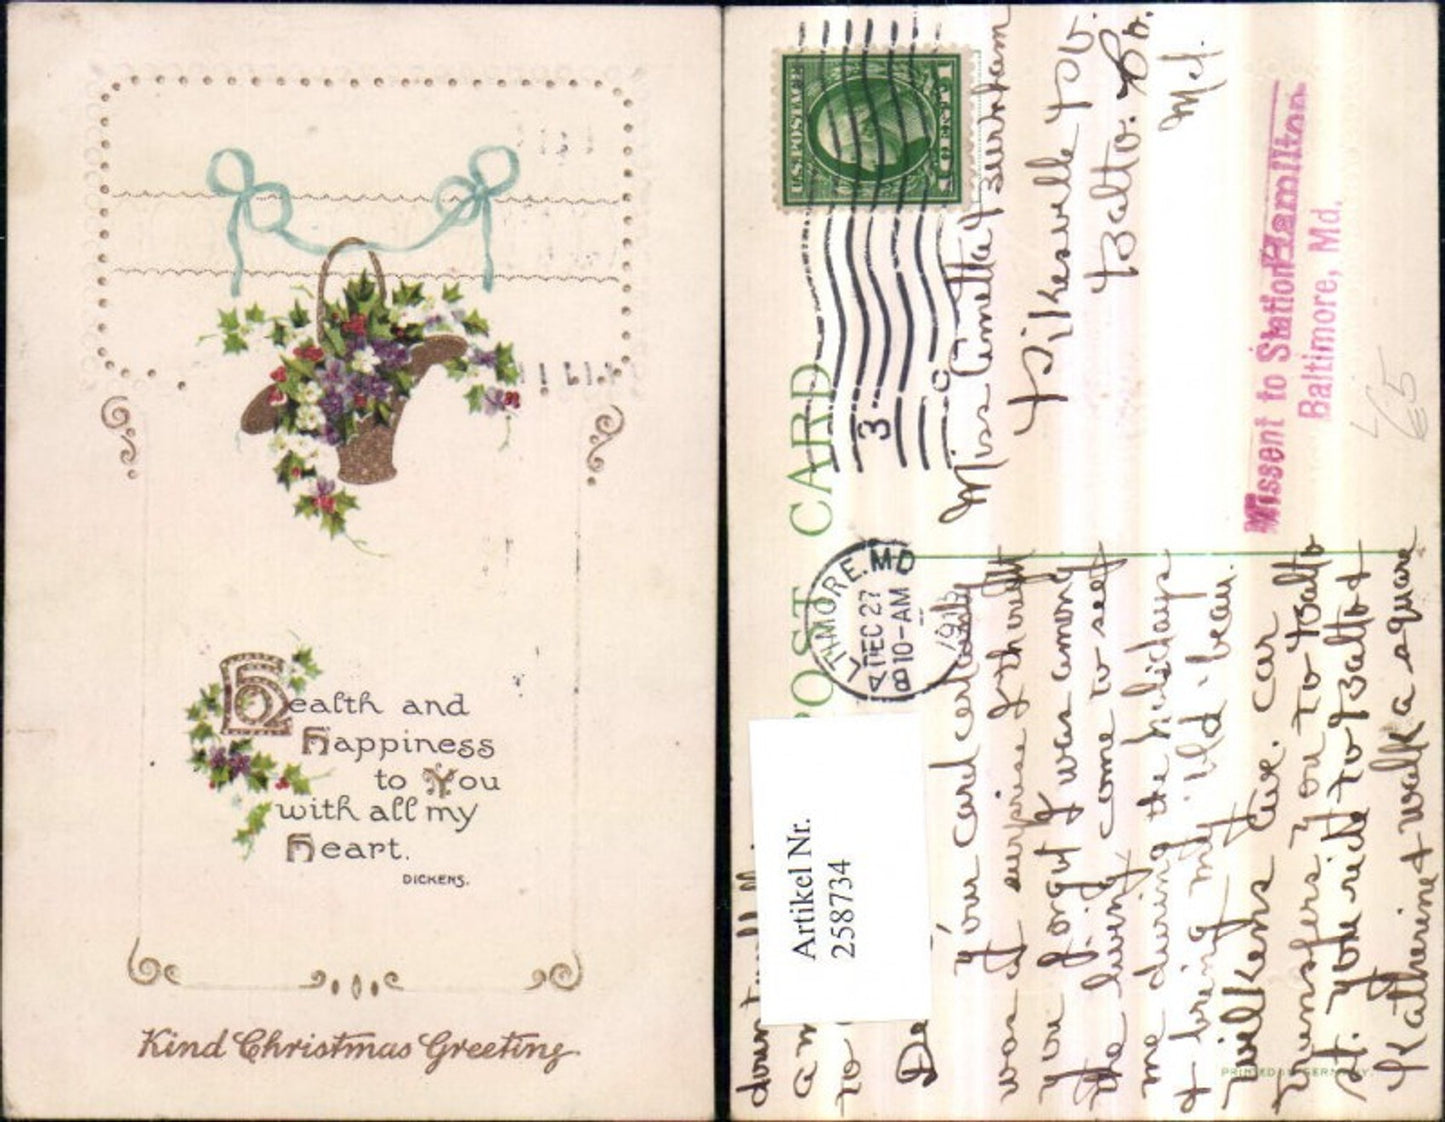 Health and
Happiness
to You
with all my
Heart.
DICKENS.
Kind Christmas Greeting
POST CARD
U.S. POSTAGE
1 CENT 1
BALTIMORE, MD
DEC 27
810-AM
1913
3
C
Miss Annetta Burnham
Pikesville P.O.
Balto. Co.
Md.
Missent to Station Hamilton
Baltimore, Md.
65
Artikel Nr.
258734
De
Your card certainly
was a surprise I thought
you forgot I was among
the living, come to see
me during the holidays
& bring my old beau.
Wilkens Ave. car
transfers you to Balto
st. you ride to Balto &
Katherine & walk a square
down
am
to
PRINTED IN GERMANY.